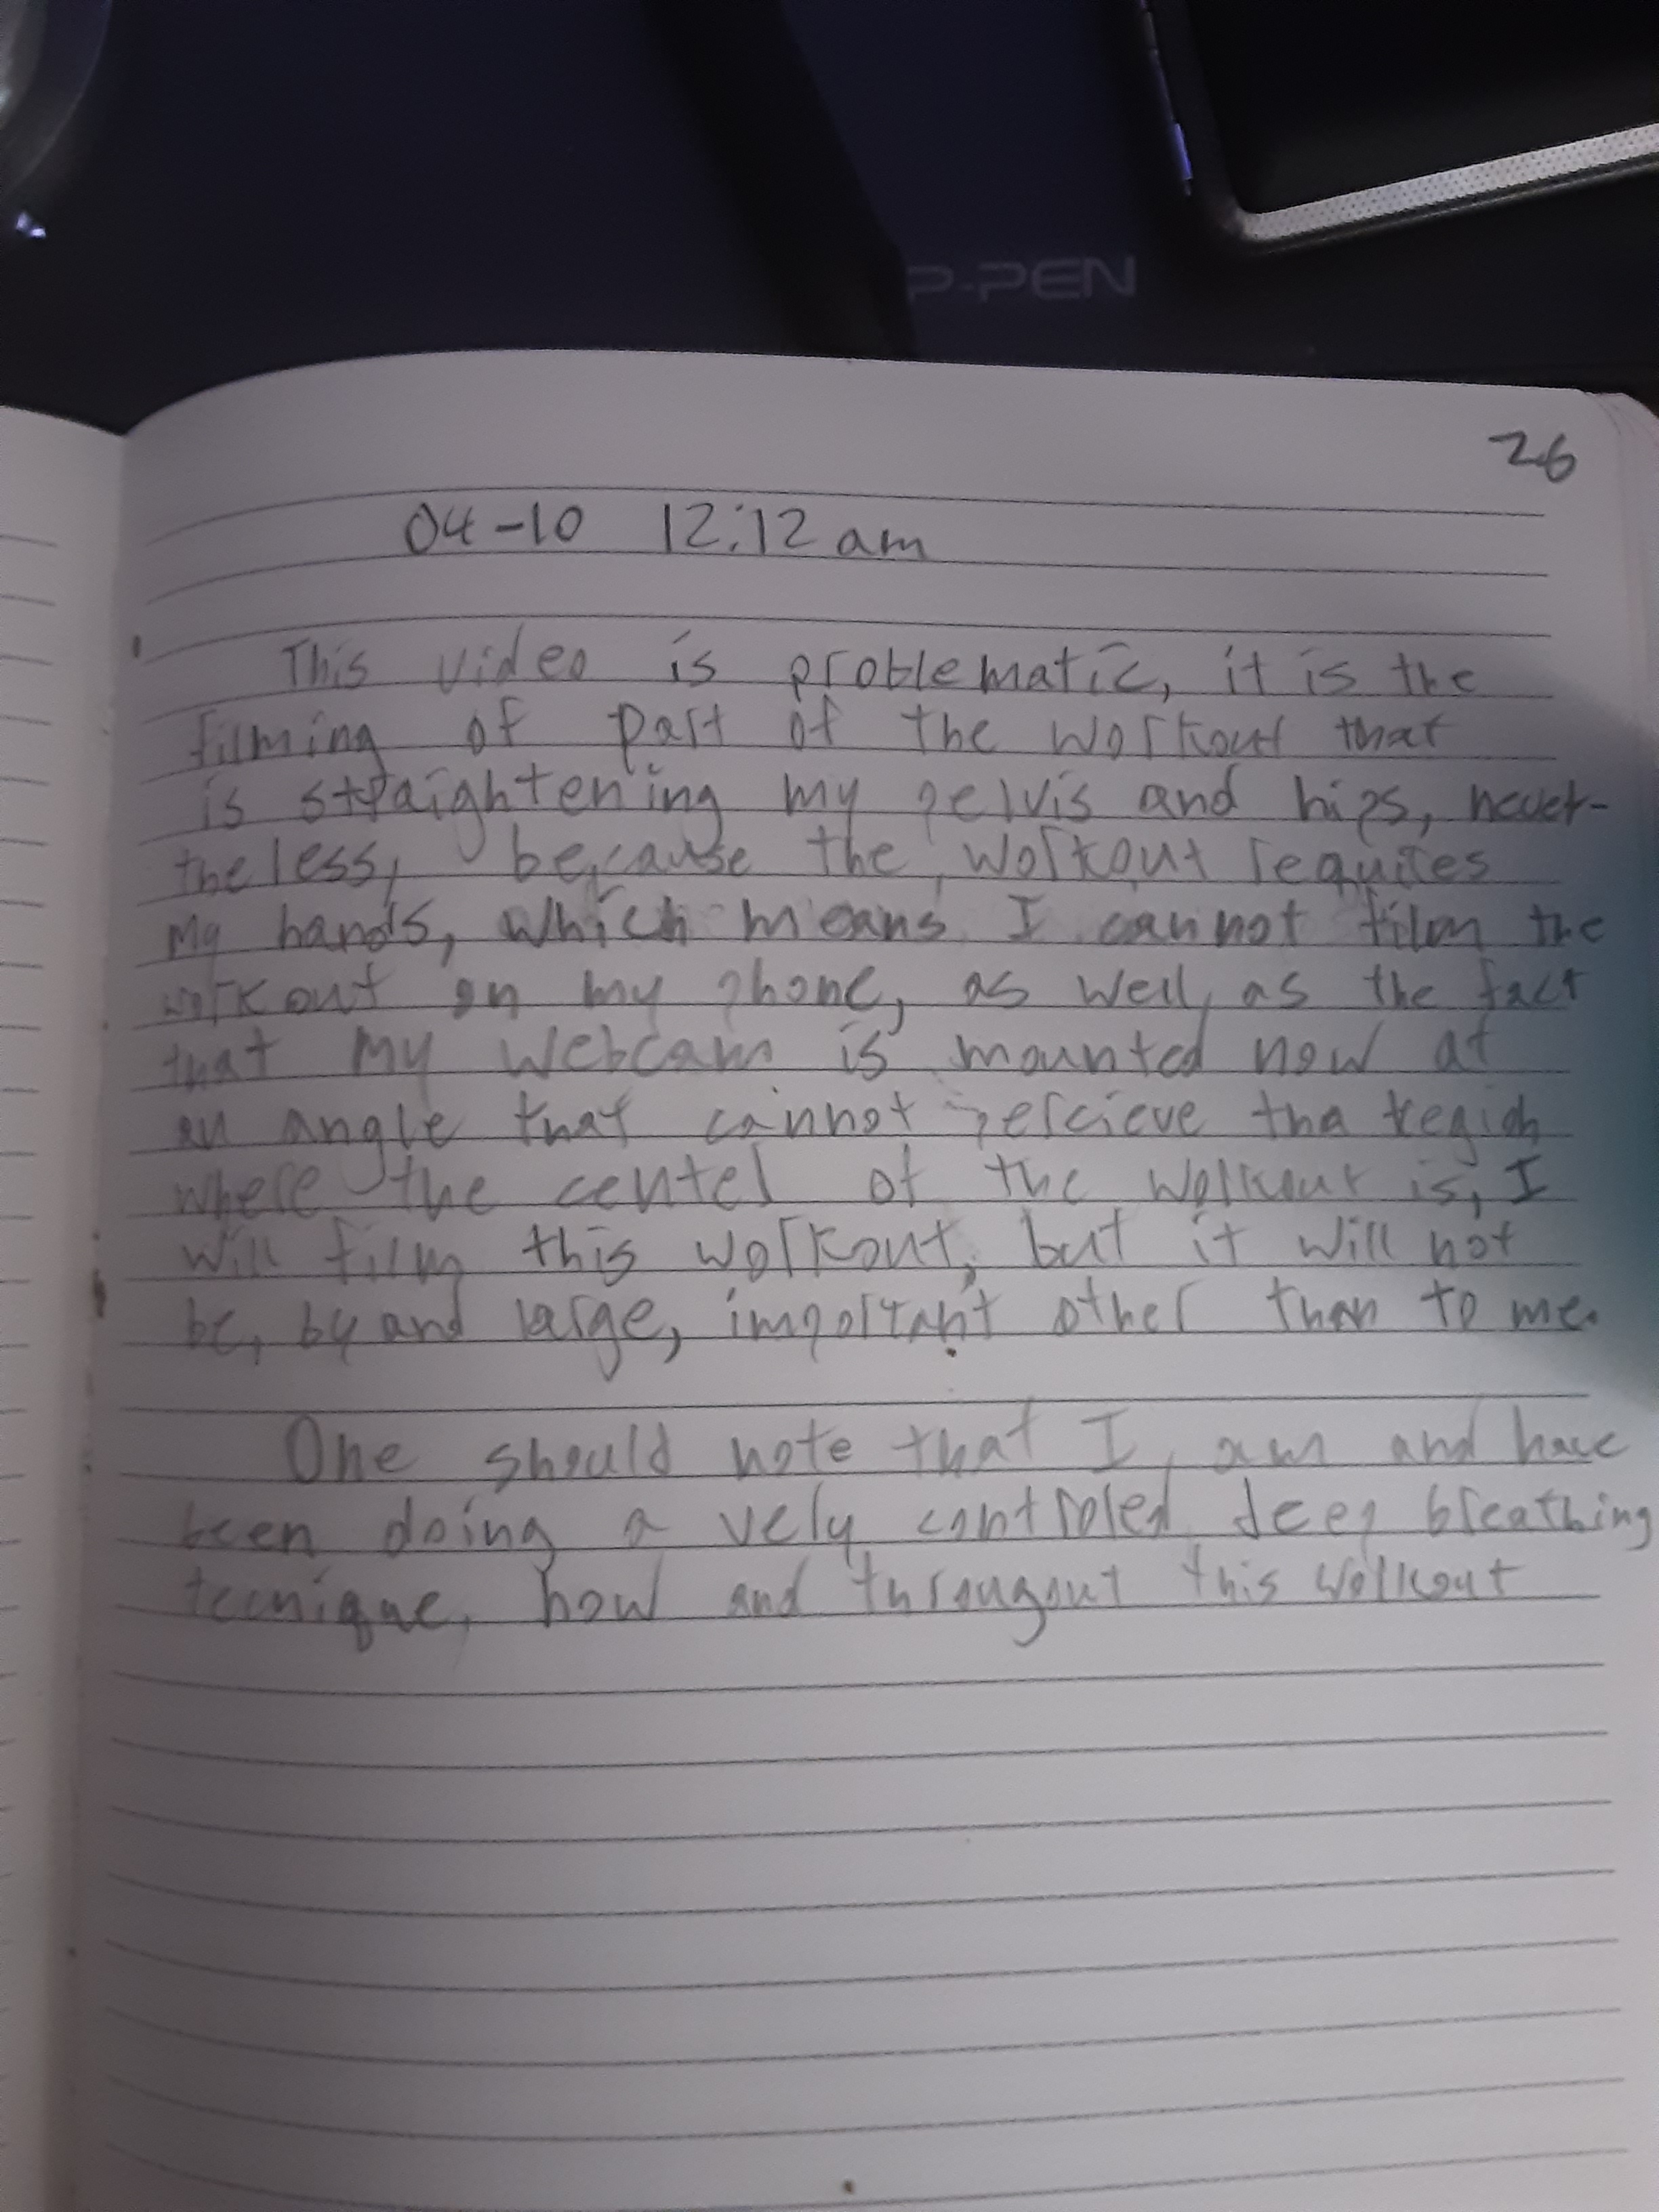 P-PEN
26
04-10 12:12 am
This video is problematic, it is the
filming of part of the workout that
is straightening my pelvis and hips, never-
theless, because the workout requires
my hands, which means I cannot film the
workout on my phone, as well as the fact
that my webcam is mounted now at
an angle that cannot percieve the region
where the center of the workout is, I
will film this workout, but it will not
be, by and large, important other than to me.
One should note that I am and have
been doing a very controled deep breathing
tecnique, now and througout this workout